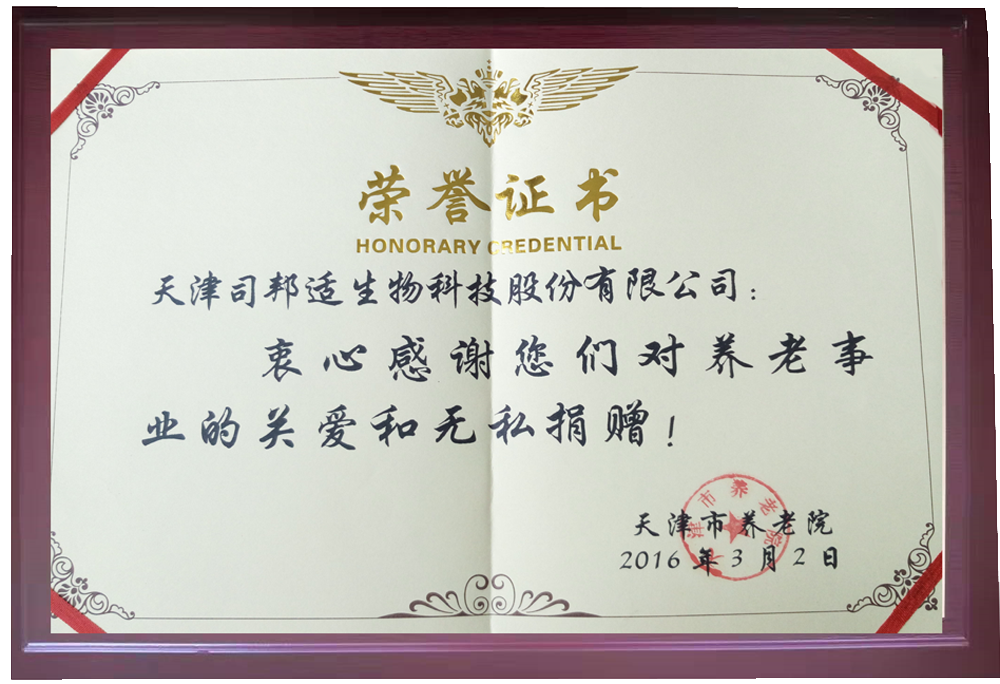 荣誉证书
HONORARY CREDENTIAL
天津司邦适生物科技股份有限公司：
衷心感谢您们对养老事
业的关爱和无私捐赠！
天津市养老院
天津市养老院
2016年3月2日